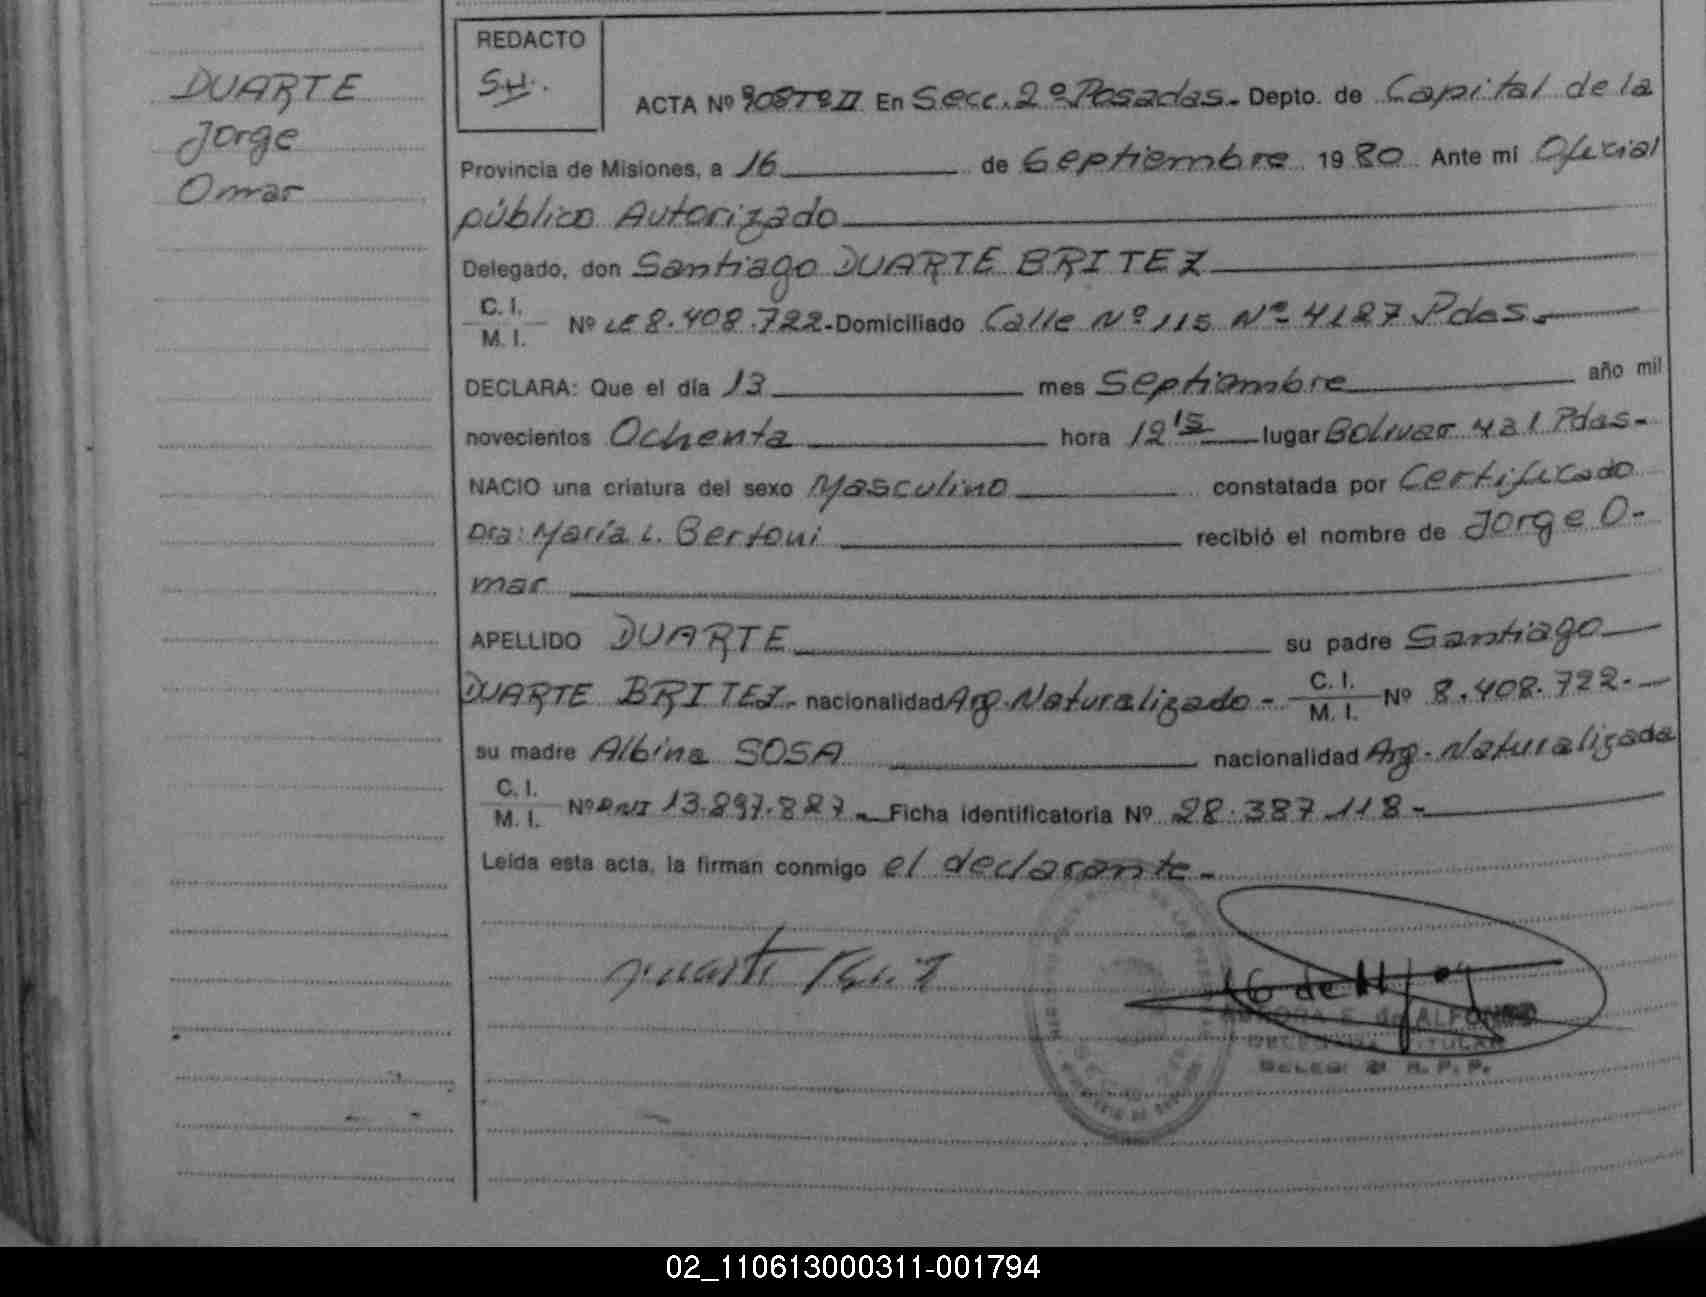 DUARTE
Jorge
Omar
REDACTO
SH.
ACTA Nº 908 Tº II En Secc. 2º Posadas.- Depto. de Capital de la
Provincia de Misiones, a 16 de Septiembre 1980 Ante mi Oficial
público Autorizado
Delegado, don Santiago DUARTE BRITEZ
C. I.
M. I. Nº LE 8.408.722.- Domiciliado Calle Nº 115 Nº 4127 Pdas.-
DECLARA: Que el día 13 mes Septiembre año mil
novecientos Ochenta hora 12 15 lugar Bolivar 421 Pdas-
NACIO una criatura del sexo Masculino constatada por Certificado
Dra: María L. Bertoni recibió el nombre de Jorge O-
mar
APELLIDO DUARTE su padre Santiago
DUARTE BRITEZ.- nacionalidad Arg. Naturalizado - C. I.
M. I. Nº 8.408.722.-
su madre Albina SOSA nacionalidad Arg. Naturalizada
C. I.
M. I. Nº DNI 13.897.827.- Ficha identificatoria Nº 28.387.118-
Leída esta acta, la firman conmigo el declarante.-
16 de
de ALFONSO
TITULAR
R. P. P.
02_110613000311-001794